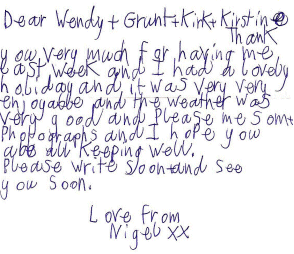 Dear Wendy + Grunt + Kirk + Kirstine
Thank
you very much for having me
Last week and I had a lovely
holiday and it was very very
enjoyable and the weather was
very good and Please me some
Photographs and I hope you
are all keeping well.
Please write soon and see
you soon.
Love from
Nigel XX